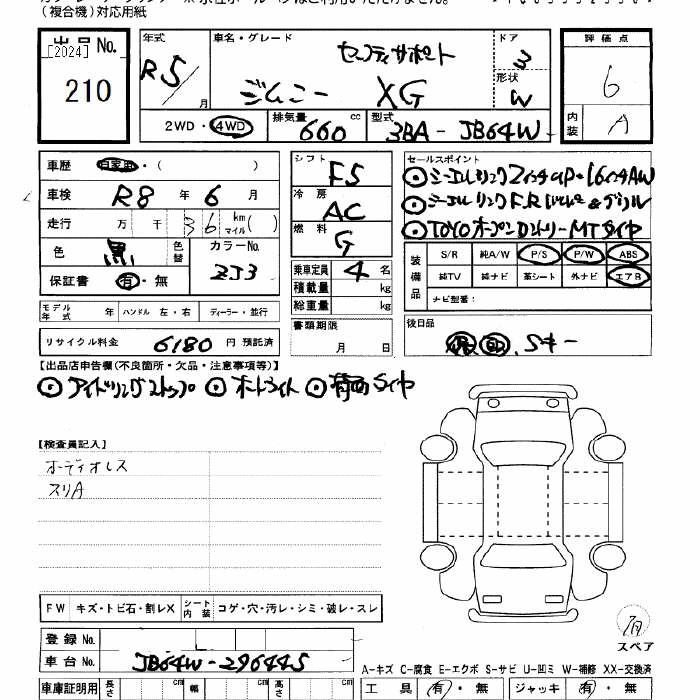 (複合機)対応用紙
出品 No. [2024]
210
年式 R5/ 月
車名・グレード
セーフティサポート
ジムニー XG
ドア 3
形状 W
評価点 6
内装 A
2WD・4WD
排気量 660 cc
型式 3BA-JB64W
車歴 自家用・( )
車検 R8 年 6 月
走行 万 千 36 km マイル( )
色 黒 色替 カラーNo. ZJ3
保証書 有・無
シフト F5
冷房 AC
燃料 G
乗車定員 4 名
積載量 kg
総重量 kg
セールスポイント
◎シーエルリンク2インチup・16インチAW
◎TOYOオープンカントリーMTタイヤ
装備品
S/R 純A/W P/S P/W ABS
純TV 純ナビ 革シート 外ナビ エアB
ナビ型番:
モデル年式 年 ハンドル 左・右 ディーラー・並行
リサイクル料金 6180 円 預託済
書類期限
月 日
後日品
保 取 .Sキー
【出品店申告欄(不良箇所・欠品・注意事項等)】
◎アイドリングストップ ◎オートライト ◎背面タイヤ
【検査員記入】
オーディオレス
スリA
FW キズ・トビ石・割レX シート内装 コゲ・穴・汚レ・シミ・破レ・スレ
スペア
登録 No.
車台 No. JB64W-296445
A-キズ C-腐食 E-エクボ S-サビ U-凹ミ W-補修 XX-交換済
車庫証明用 長さ cm 幅 cm 高さ cm
工具 有・無 ジャッキ 有・無